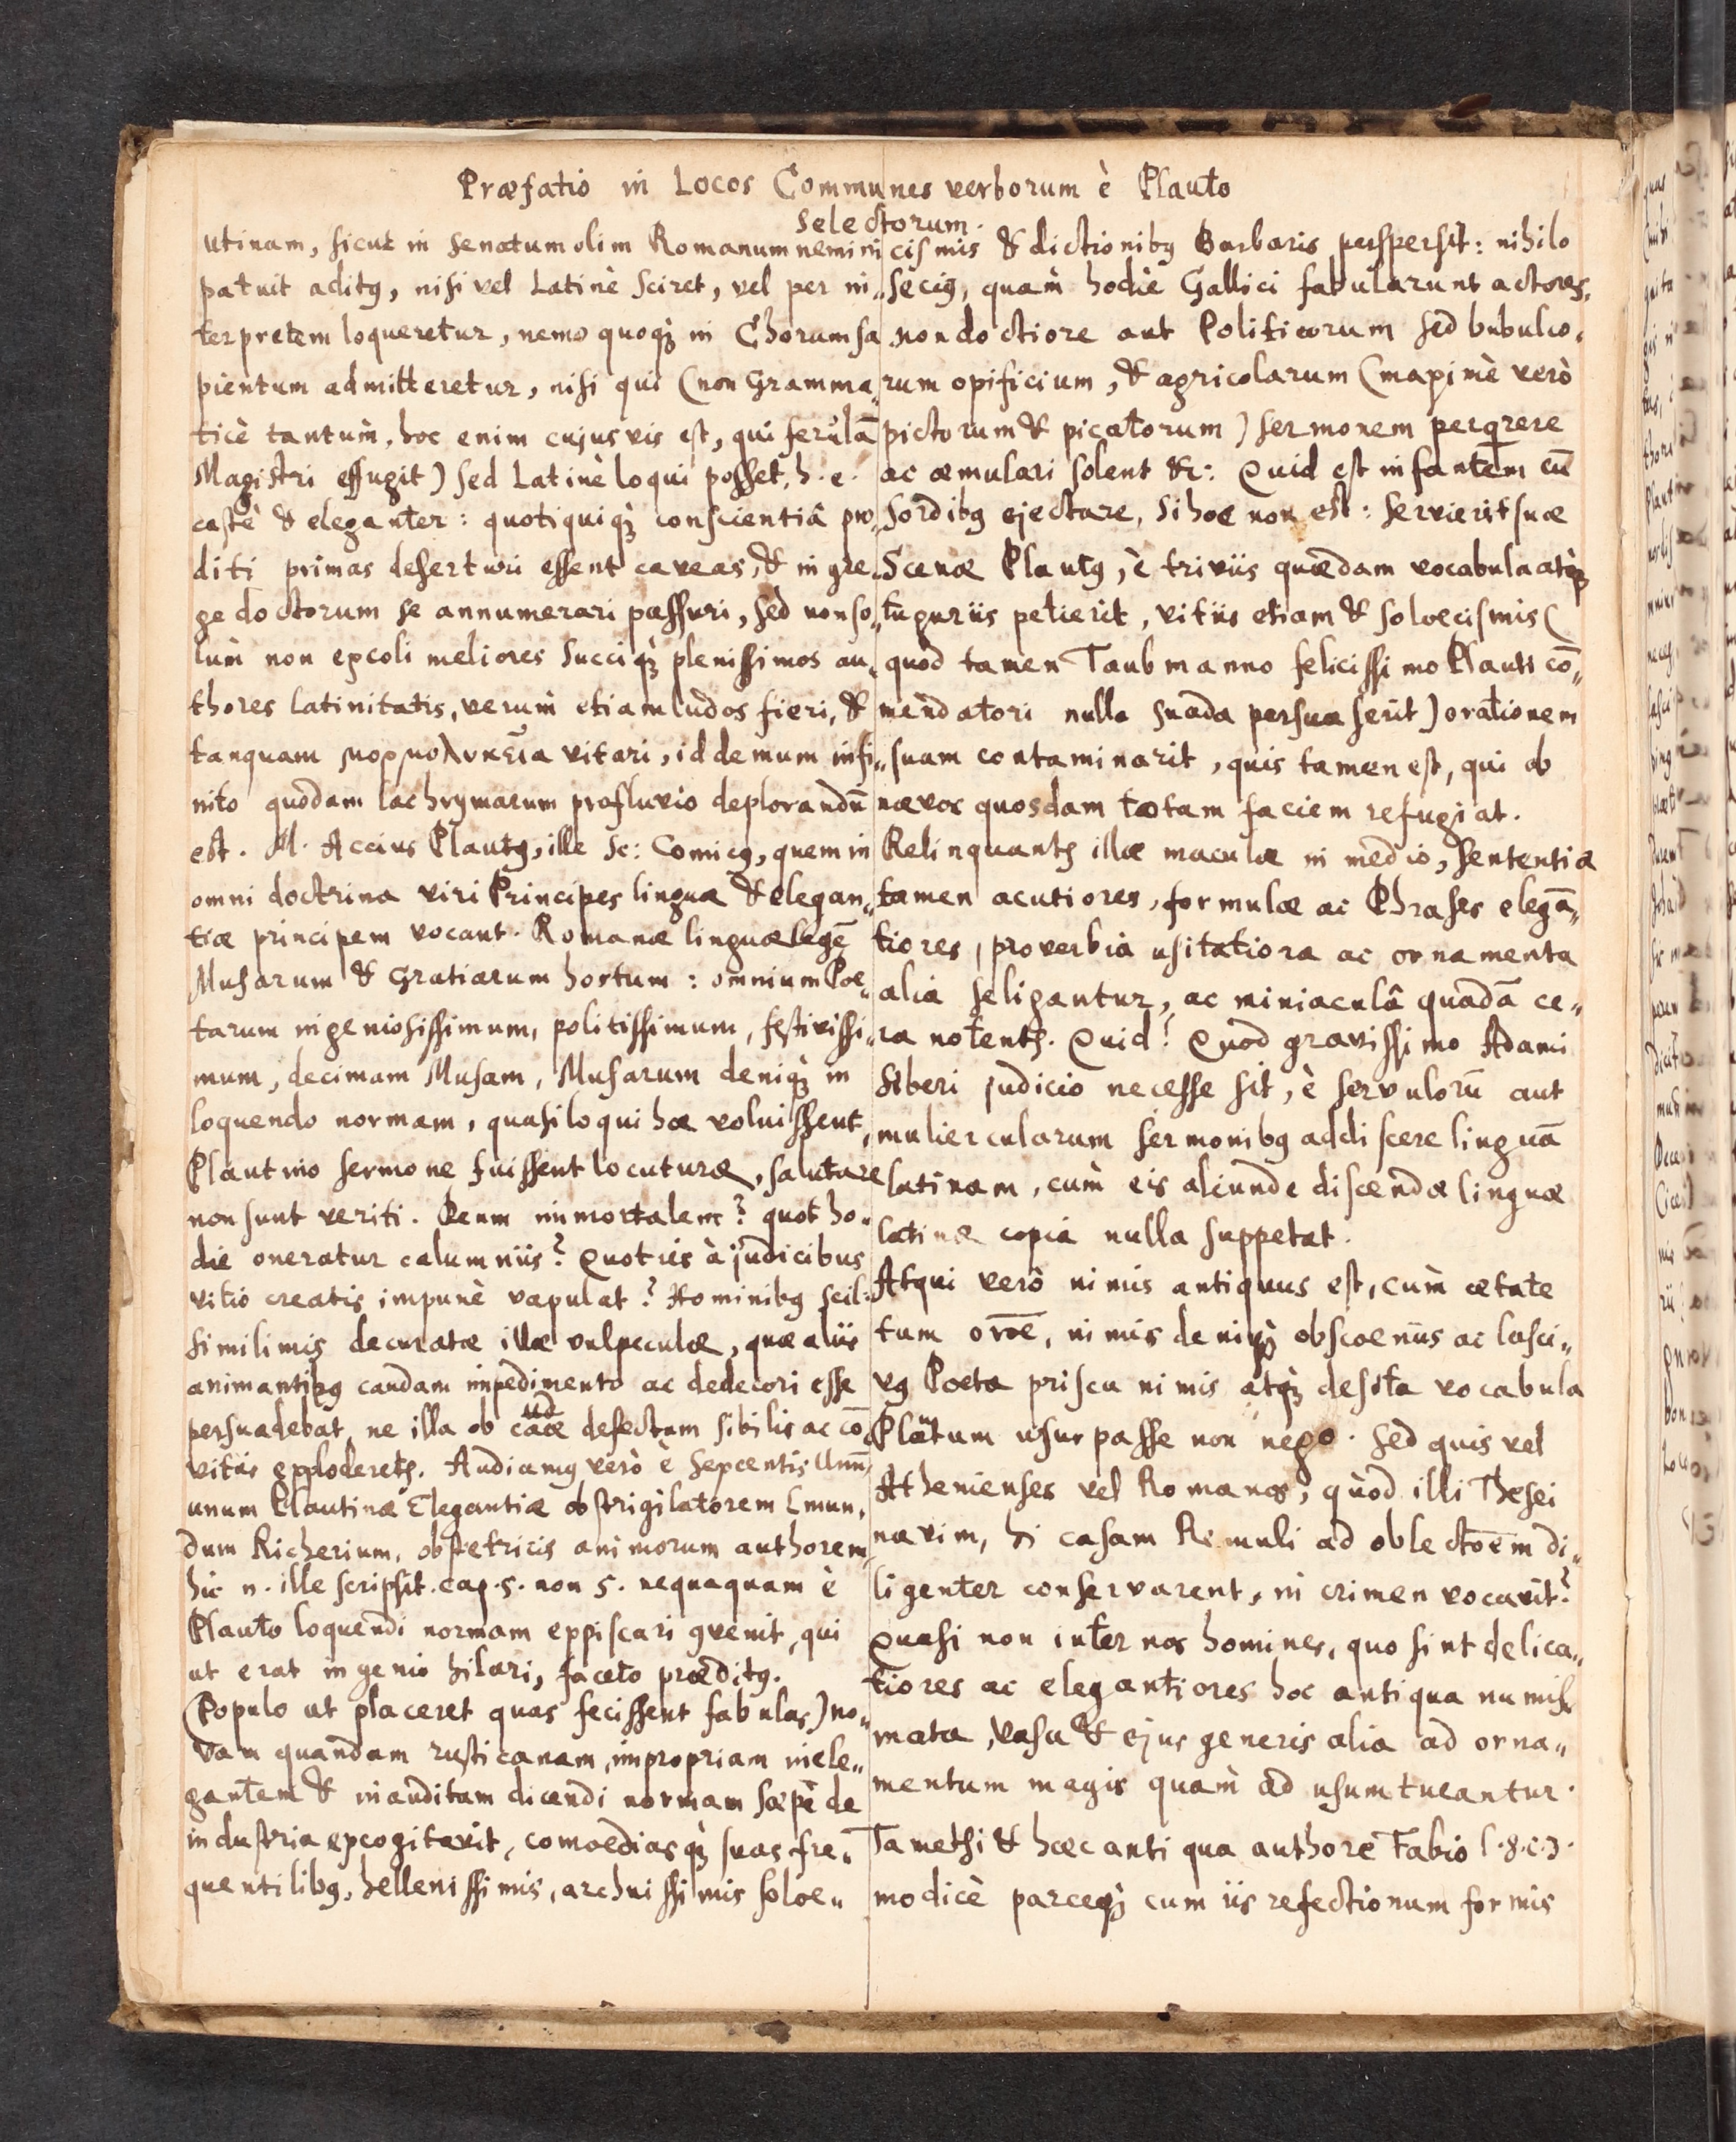 Præfatio in Locos Communes verborum è Plauto
Selectorum.
Utinam, sicut in Senatum olim Romanum nemini
patuit aditꝰ, nisi vel Latinè sciret, vel per in„
terpretem loqueretur, nemo quoqꝫ in Chorum sa
pientum admitteretur, nisi qui (non Gramma„
ticè tantùm, hoc enim cujusvis est, qui ferulā
Magistri effugit) sed Latinè loqui posset, h. e.
castè & eleganter: quotiquiqꝫ conscientiâ pro„
diti primas deserturi essent caveas, & in gre„
ge doctorum se annumerari passuri, sed non so„
lùm non excoli meliores Succiqꝫ plenissimos au„
thores latinitatis, verùm etiam ludos fieri, &
tanquam μορμολυκεῖα vitari, id demum infi„
nito quodam lachrymarum profluvio deplorandū
est. M. Accius Plautꝰ, ille sc: Comicꝰ, quem in
omni doctrina viri Principes linguæ & elegan„
tiæ principem vocant. Romanæ linguæ legē
Musarum & Gratiarum hortum: omnium Poe„
tarum ingeniosissimum, politissimum, festivissi„
mum, decimam Musam, Musarum deniqꝫ in
loquendo normam, quasi loqui hæ voluissent,
Plautino sermone fuissent locuturæ, salutare
non sunt veriti. Deum immortalem? quot ho„
die oneratur calumniis? Quoties à judicibus
vitio creatis impunè vapulat? Hominibꝰ scil:
similimis decuratæ illæ vulpeculæ, quæ aliis
animantibꝰ caudam impedimento ac dedecori esse
persuadebat, ne illa ob caudæ defectum sibilis ac cō
vitiis exploderetꝭ. Audiamꝰ verò è Sepcentis Unū,
unum Plautinæ Elegantiæ obstrigilatorem Emun,
dum Richerium, obstetricis animorum authorem
hic n. ille scripsit. cap. 5. non 5. nequaquam è
Plauto loquendi normam expiscari ꝯvenit, qui
ut erat ingenio hilari, faceto præditꝰ.
(Populo ut placeret quas fecissent fabulas) no„
vam quandam rusticanam, impropriam inele„
gantem & inauditam dicendi normam sæpè de
industria excogitavit, comoediasqꝫ suas fre„
quentilibꝰ, hellenissimis, archaissimis soloe„
cismis & dictionibꝰ Barbaris perspersit: nihilo
seciꝰ, quàm hodie Gallici fabularunt actores,
non doctiore aut Politicorum sed bubulco„
rum opificium, & agricolarum (maximè verò
pictorum & picatorum) sermonem perqrere
ac æmulari solent &c: Quid est infantem cū
Sordibꝰ ejectare, si hoc non est: servierit suæ
Scenæ Plautꝰ, è triviis quædam vocabula atqꝫ
tuguriis petierit, vitiis etiam & soloecismis (
quod tamen Taubmanno felicissimo Plauti cō„
mendatori nulla suada persuaserit) orationem
suam contaminarit, quis tamen est, qui ob
nævos quosdam totam faciem refugiat.
Relinquantꝭ illæ maculæ in medio, sententiæ
tamen acutiores, formulæ ac Phrases elegā„
tiores, proverbia usitatiora ac ornamenta
alia seligantur, ac miniaculâ quadā ce„
ra notentꝭ. Quid? Quod gravissimo Adami
Siberi judicio necesse sit, è servulorū aut
muliercularum sermonibꝰ addiscere linguā
latinam, cùm eis aliunde discendæ linguæ
latinæ copia nulla suppetat.
Atqui verò nimis antiquus est, cùm ætate
tum oroē, nimis deniqꝫ obscoenus ac lasci„
vꝰ Poeta prisca nimis atqꝫ desita vocabula
Plautum usurpasse non nego. Sed quis vel
Athenienses vel Romanos, quòd illi Thesei
navim, hi casam Romuli ad oblectoēm di„
ligenter conservarent, in crimen vocavit?
Quasi non inter nos homines, quo sint delica„
tiores ac elegantiores hoc antiqua numis
mata, vasa & ejus generis alia ad orna„
mentum magis quàm ad usum tueantur.
Tametsi & hæc antiqua authore Fabio l. 8. c. 3.
modicè parceqꝫ cum iis refectionum formis